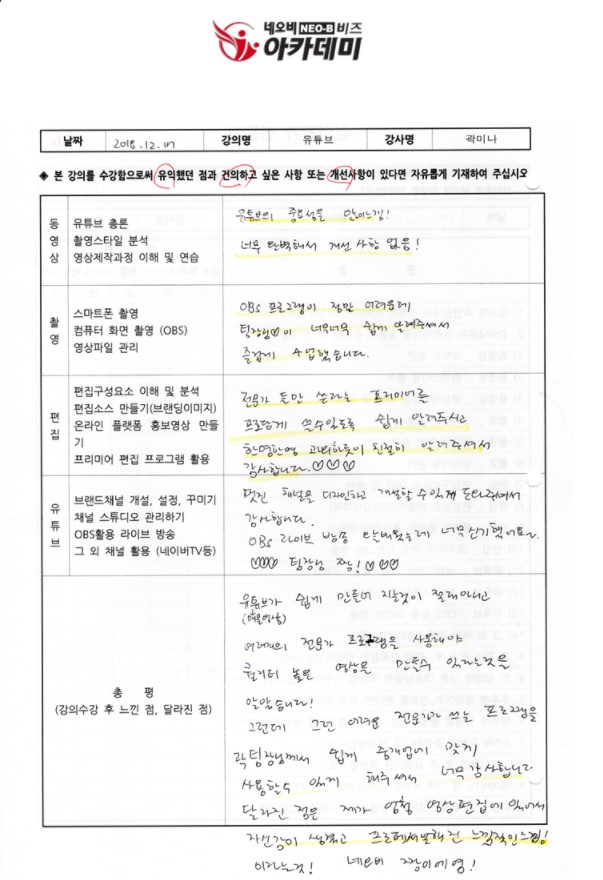 네오비 NEO-B 비즈
아카데미
날짜 2018.12.17 강의명 유튜브 강사명 곽미나
◈ 본 강의를 수강함으로써 유익했던 점과 건의하고 싶은 사항 또는 개선사항이 있다면 자유롭게 기재하여 주십시오
동영상
유튜브 총론
촬영스타일 분석
영상제작과정 이해 및 연습
유튜브의 중요성을 많이느낌!
너무 완벽해서 개선 사항 없음!
촬영
스마트폰 촬영
컴퓨터 화면 촬영 (OBS)
영상파일 관리
OBS 프로그램이 정말 어려운데
팀장님♡이 너무너무 쉽게 알려주셔서
즐겁게 수업했습니다.
편집
편집구성요소 이해 및 분석
편집소스 만들기(브랜딩이미지)
온라인 플랫폼 홍보영상 만들
기
프리미어 편집 프로그램 활용
전문가 들만 쓰라는 프리미어를
프로답게 쓸수있도록 쉽게 알려주시고
한명한명 과외하듯이 친절히 알려주셔서
감사합니다.♡♡♡
유튜브
브랜드채널 개설, 설정, 꾸미기
채널 스튜디오 관리하기
OBS활용 라이브 방송
그 외 채널 활용 (네이버TV등)
멋진 채널을 디자인하고 개설할 수 있게 도와주셔서
감사합니다.
OBS 라이브 방송 알려줬는데 너무 신기했어요~
♡♡♡ 팀장님 짱! ♡♡♡
총 평
(강의수강 후 느낀 점, 달라진 점)
유튜브가 쉽게 만들어 지는것이 절대아니고
여러개의 전문가 프로그램을 사용해야
퀄리티 높은 영상을 만들수 있다는것을
알았습니다!
그런데 그런 어려운 전문가가 쓰는 프로그램을
곽팀장님께서 쉽게 중개업에 맞게
사용할수 있게 해주셔서 너무감사합니다
달라진 점은 제가 엄청 영상편집에 있어서
자신감이 생겼고 프로페셔널해진 느낌적인느낌!
이라는것! 네오비 짱이에영!